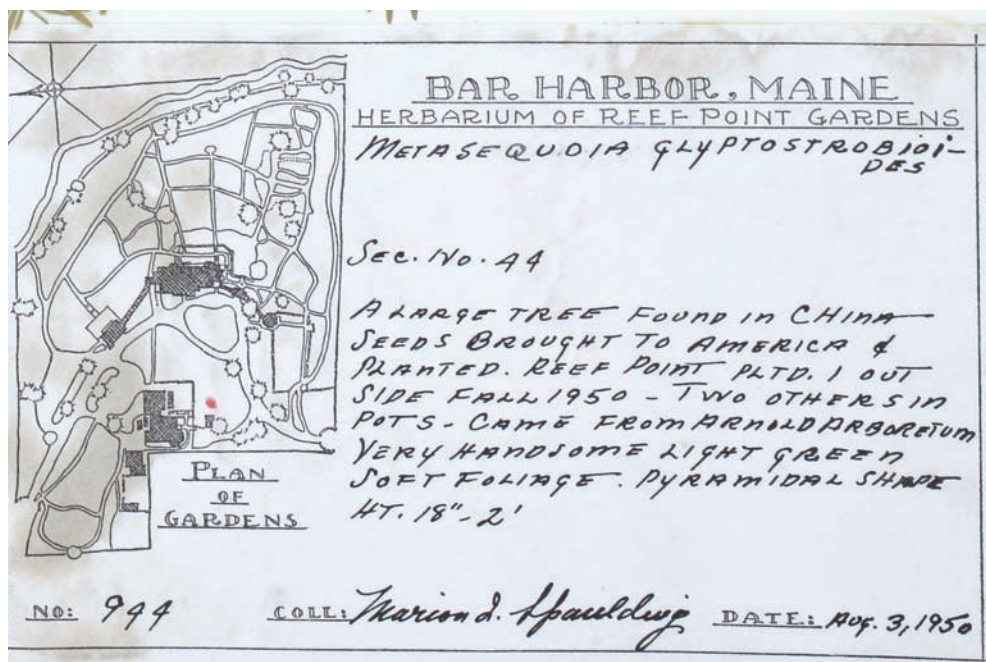 BAR HARBOR, MAINE
HERBARIUM OF REEF POINT GARDENS
METASEQUOIA GLYPTOSTROBIOI-
DES
SEC. NO. 44
A LARGE TREE FOUND IN CHINA
SEEDS BROUGHT TO AMERICA &
PLANTED. REEF POINT PLTD. 1 OUT
SIDE FALL 1950 - TWO OTHERS IN
POTS - CAME FROM ARNOLD ARBORETUM
VERY HANDSOME LIGHT GREEN
SOFT FOLIAGE. PYRAMIDAL SHAPE
HT. 18"- 2'
PLAN
OF
GARDENS
NO: 944 COLL: Marion I. Spaulding DATE: AUG. 3, 1950